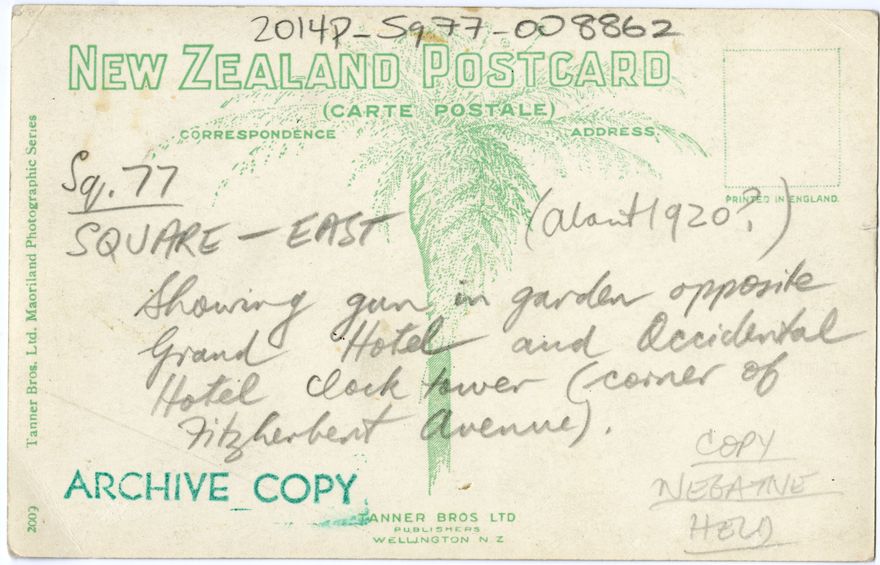 2014P_Sq77-008862
NEW ZEALAND POSTCARD
(CARTE POSTALE)
CORRESPONDENCE
ADDRESS.
PRINTED IN ENGLAND.
Tanner Bros. Ltd. Maoriland Photographic Series
2009
Sq. 77
SQUARE - EAST (about 1920?)
Showing gun in garden opposite
Grand Hotel and Occidental
Hotel clock tower (corner of
Fitzherbert Avenue).
COPY
NEGATIVE
HELD
ARCHIVE COPY
TANNER BROS LTD
PUBLISHERS
WELLINGTON N.Z